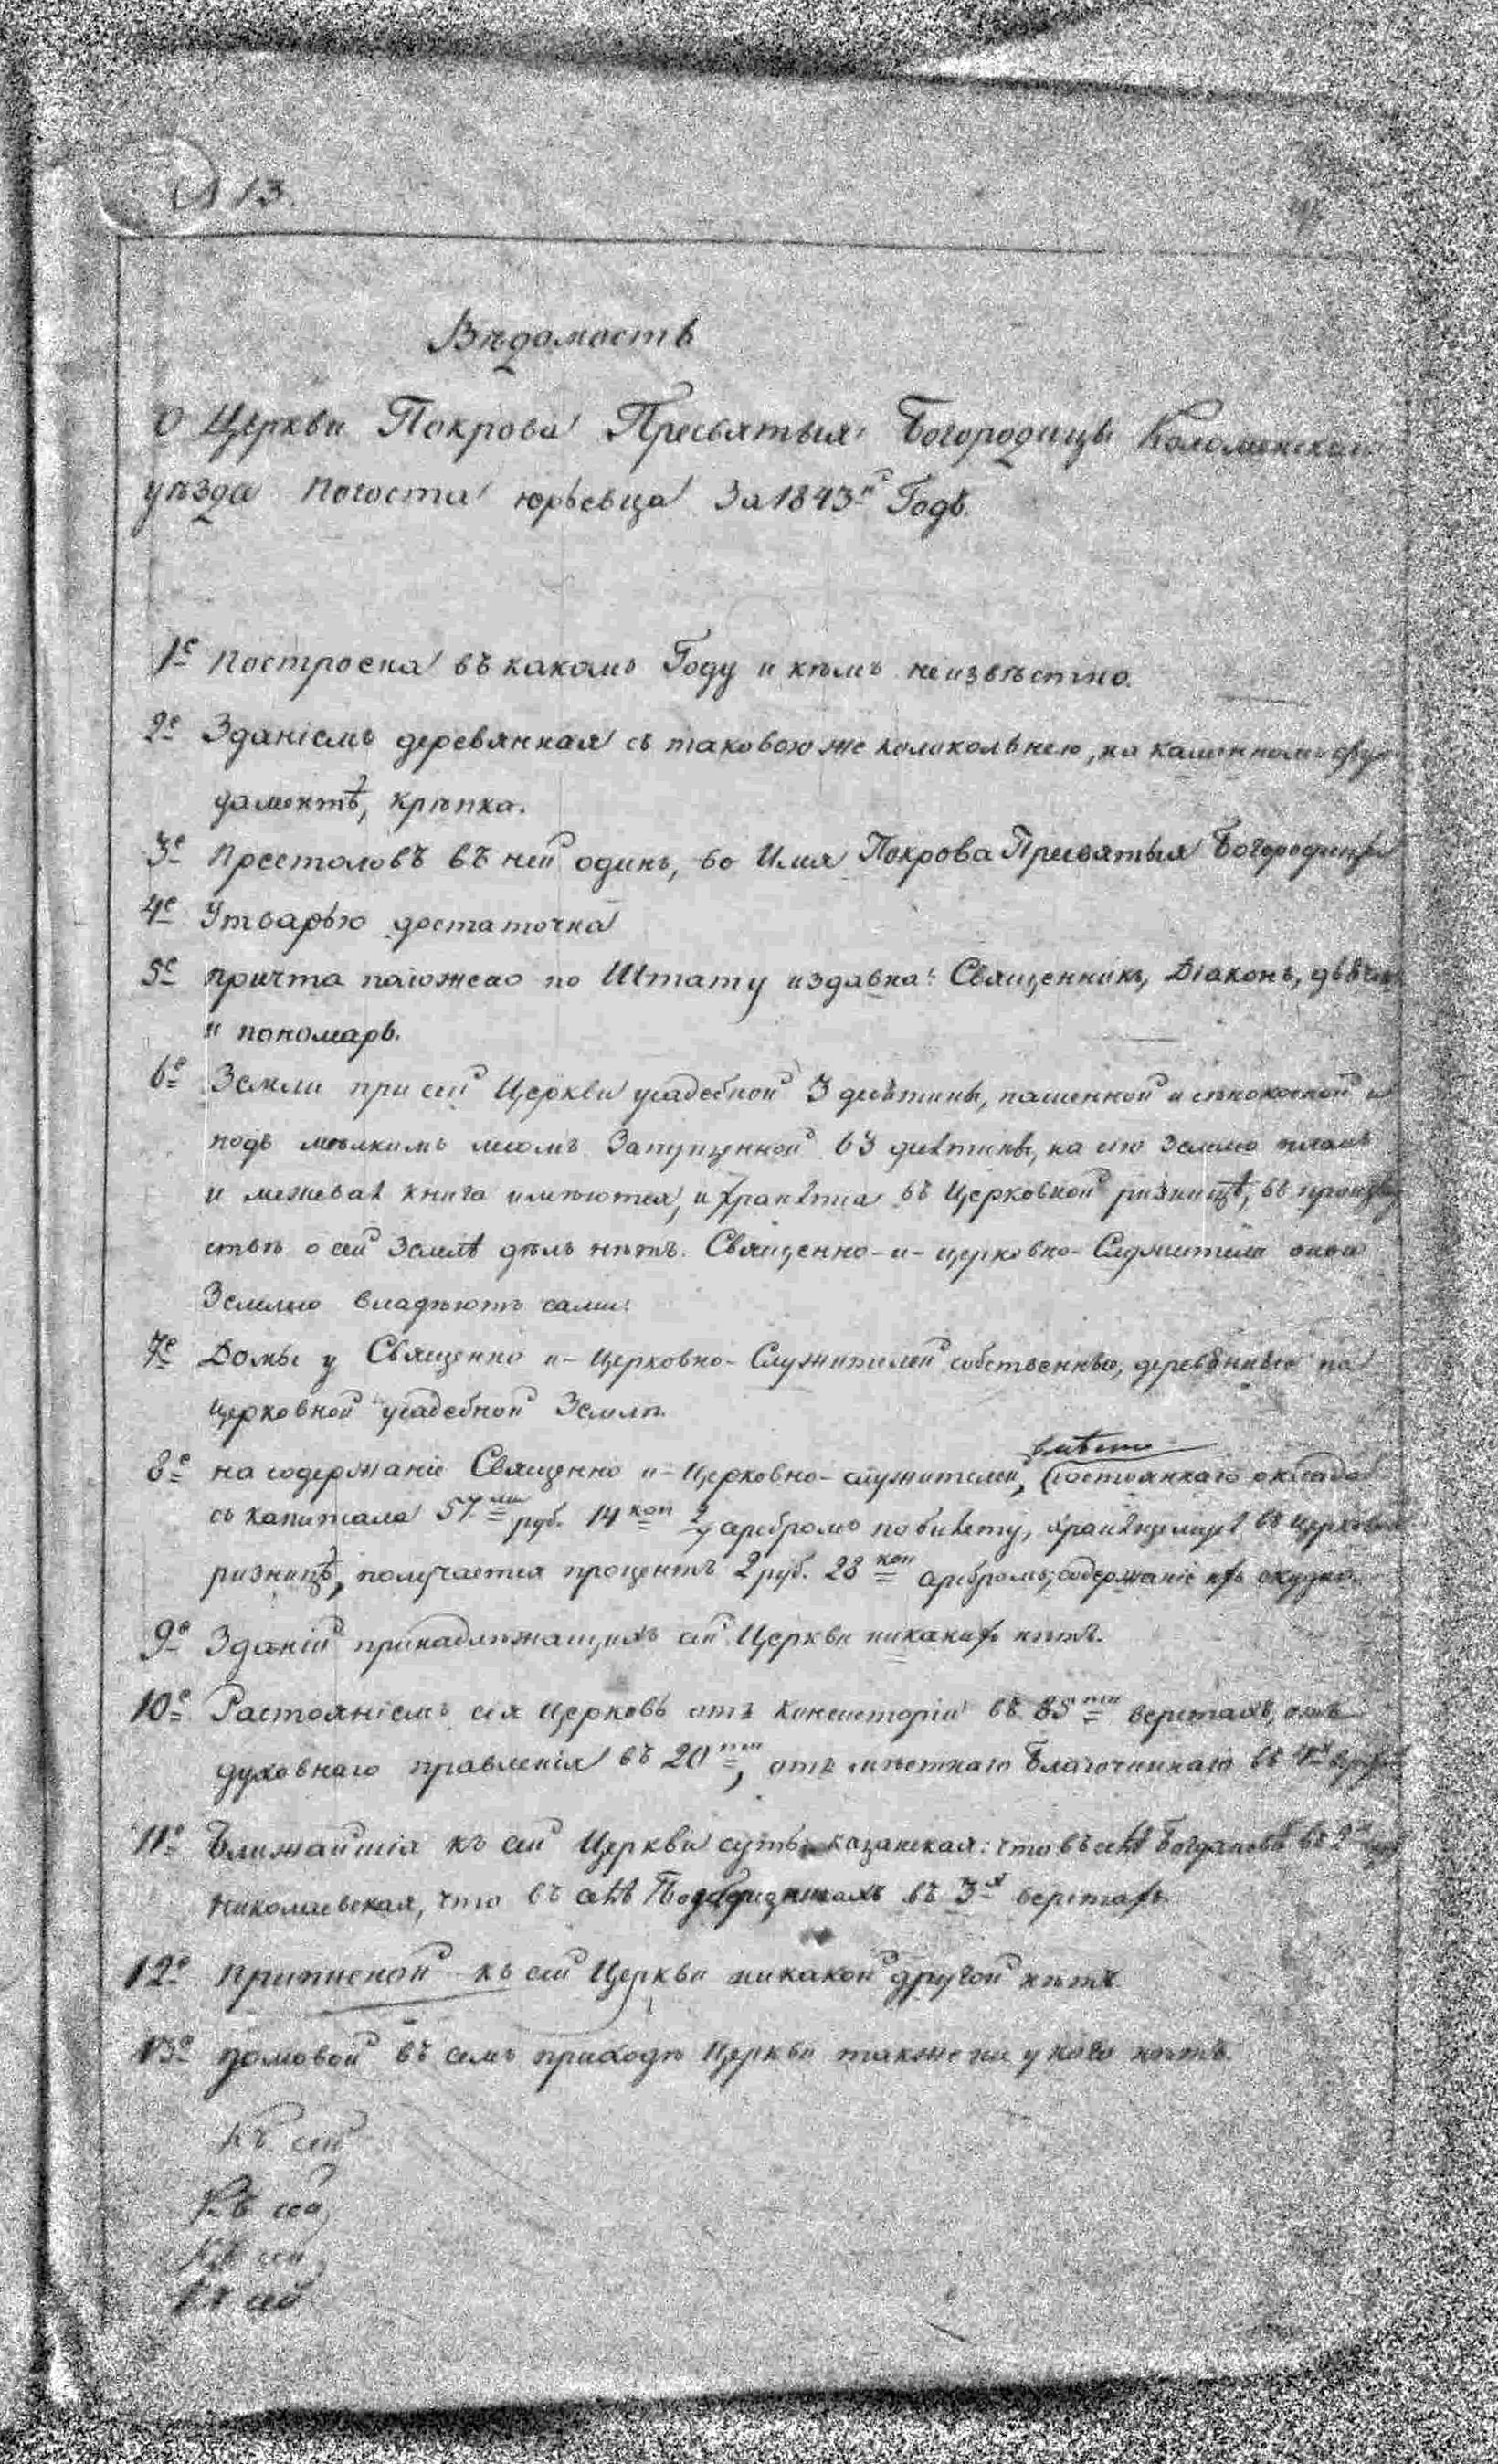 № 13.
Вѣдомость
О Церкви Покрова Пресвятыя Богородицы Коломенскаго
уѣзда Погоста Юрьевца За 1843й Годъ.
1е Построена въ какомъ Году и кѣмъ неизвѣстно.
2е Зданіемъ деревянная съ таковою же колокольнею, на каменномъ фун
даментѣ, крѣпка.
3е Престоловъ въ ней одинъ, во Имя Покрова Пресвятыя Богородицы
4е Утварью достаточна
5е Причта положено по Штату издавна: Священникъ, Діаконъ, дьячекъ
и пономарь.
6е Земли при сей Церкви усадебной 3 десятины, пашенной и сѣнокосной и
подъ мѣлкимъ лѣсомъ Запущенной 63 десятины, на сію Землю планъ
и межевая книга имѣются, и хранятся въ Церковной ризницѣ, въ производ
ствѣ о сей Землѣ дѣлъ нѣтъ. Священно-и-церковно-Служители оною
Землею владѣютъ сами.
7е Домы у Священно и-Церковно-Служителей собственные, деревянные на
Церковной усадебной Землѣ.
8е на содержаніе Священно и-Церковно-служителей, вмѣсто постояннаго оклада
съ капитала 57ми руб. 14 коп 2/7 серебромъ по билету, хранящемуся въ церковной
ризницѣ, получается процентъ 2 руб. 28 коп серебромъ; содержаніе ихъ скудно.
9е Зданій принадлежащихъ сей Церкви никакихъ нѣтъ.
10е Растояніемъ сія Церковь отъ Консисторіи въ 85ти верстахъ, отъ
духовнаго правленія въ 20ти, отъ мѣстнаго Благочиннаго въ
11е Ближайшія къ сей Церкви суть: Казанская: что въ селѣ Богдановѣ въ 2х
Николаевская, что въ селѣ въ 3х верстахъ
12е Приписной къ сей Церкви никакой другой нѣтъ
13е Домовой въ семъ приходѣ Церкви также ни у кого нѣтъ.
Къ сей
Къ сей
Къ сей
Къ сей